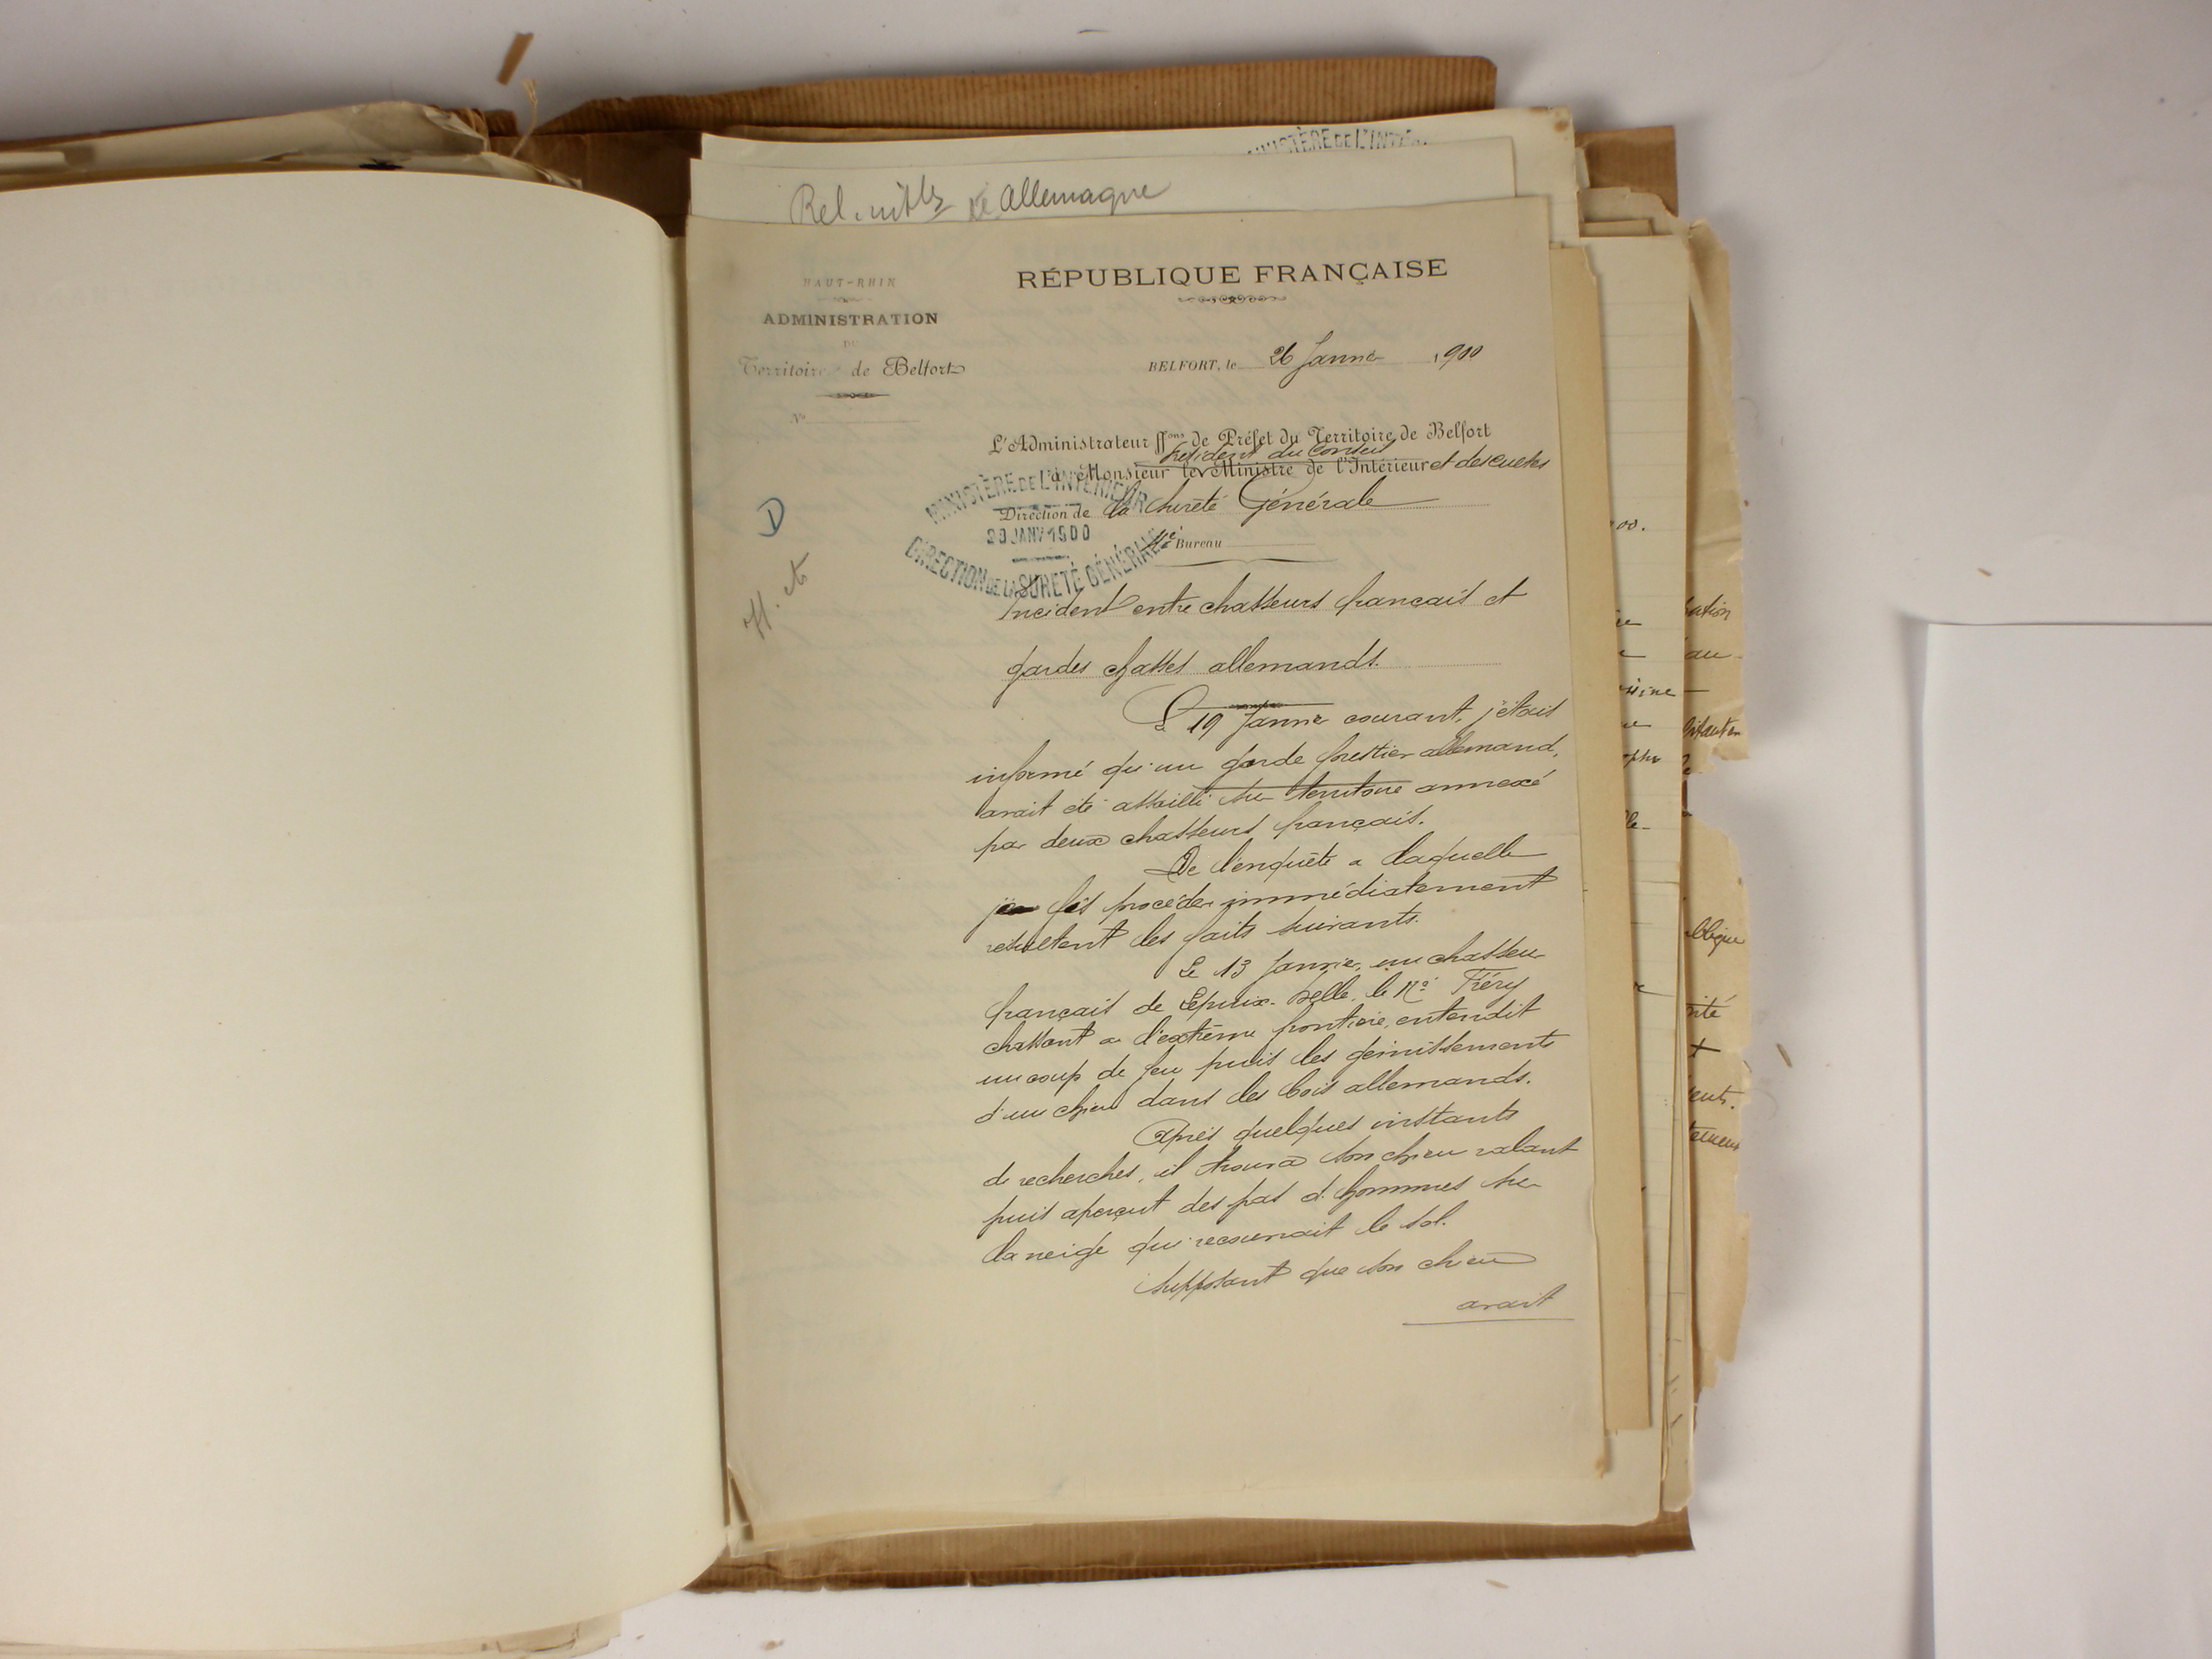 MINISTÈRE DE L'INTÉ
Allemagne
HAUT-RHIN
ADMINISTRATION
DU
Territoire de Belfort
N°
RÉPUBLIQUE FRANÇAISE
BELFORT, le 26 Janvier 1900
L'Administrateur ffons de Préfet du Territoire de Belfort
Président du Conseil
à Monsieur le Ministre de l'Intérieur et des Cultes
Direction de la Sureté Générale
Bureau
MINISTÈRE DE L'INTÉRIEUR
29 JANV 1900
DIRECTION DE LA SURETÉ GÉNÉRALE
D
Incident entre chasseurs français et
gardes chasses allemands.
Le 19 Janvier courant, j'étais
informé qu'un garde forestier allemand,
avait été assailli sur territoire annexé
par deux chasseurs français.
De l'enquête a laquelle
je fis procéder immédiatement
resultent les faits suivants.
Le 13 Janvier, un chasseur
français de Lepuix-Delle, le Mr Fréry
chassant a l'extrême frontière, entendit
un coup de feu puis les gémissements
d'un chien dans les bois allemands.
Après quelques instants
de recherches, il trouva son chien ralant
puis aperçut des pas d'hommes sur
la neige qui recouvrait le sol.
Supposant que son chien
avait